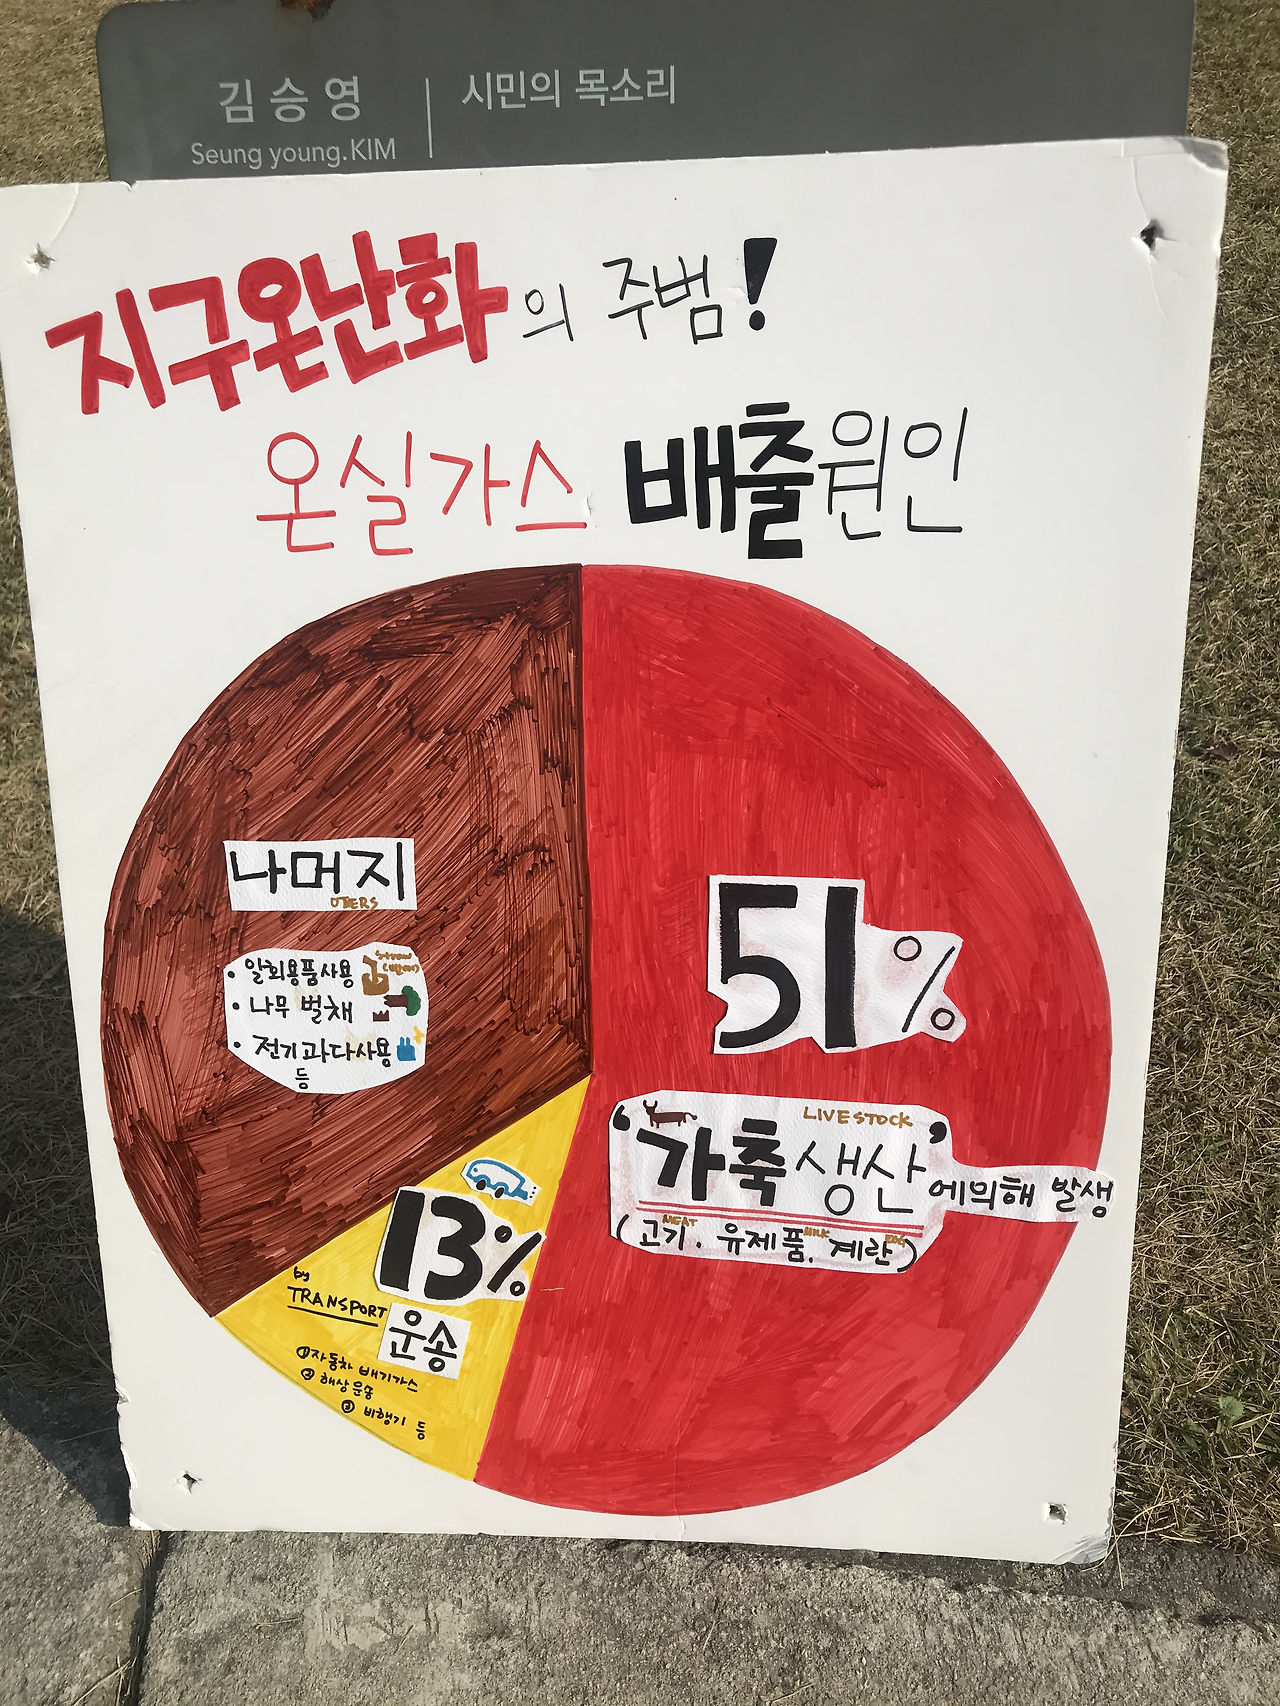 김승영
Seung young.KIM
시민의 목소리
지구온난화의 주범!
온실가스 배출원인
51%
LIVESTOCK
'가축생산'에의해 발생
MEAT MILK EGG
(고기. 유제품. 계란)
나머지
OTERS
• 일회용품사용
• 나무 벌채
• 전기과다사용
등
13%
by
TRANSPORT
운송
①자동차 배기가스
② 해상운송
③ 비행기 등